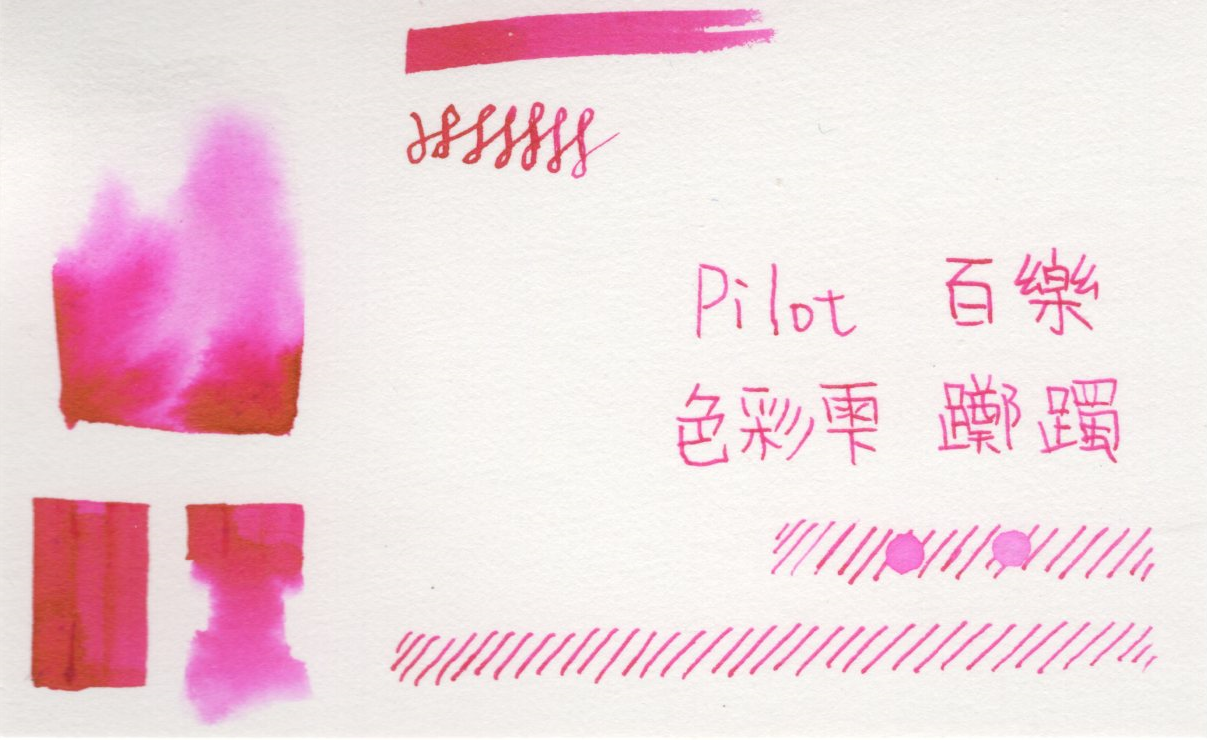 Pilot 百樂
色彩雫 躑躅